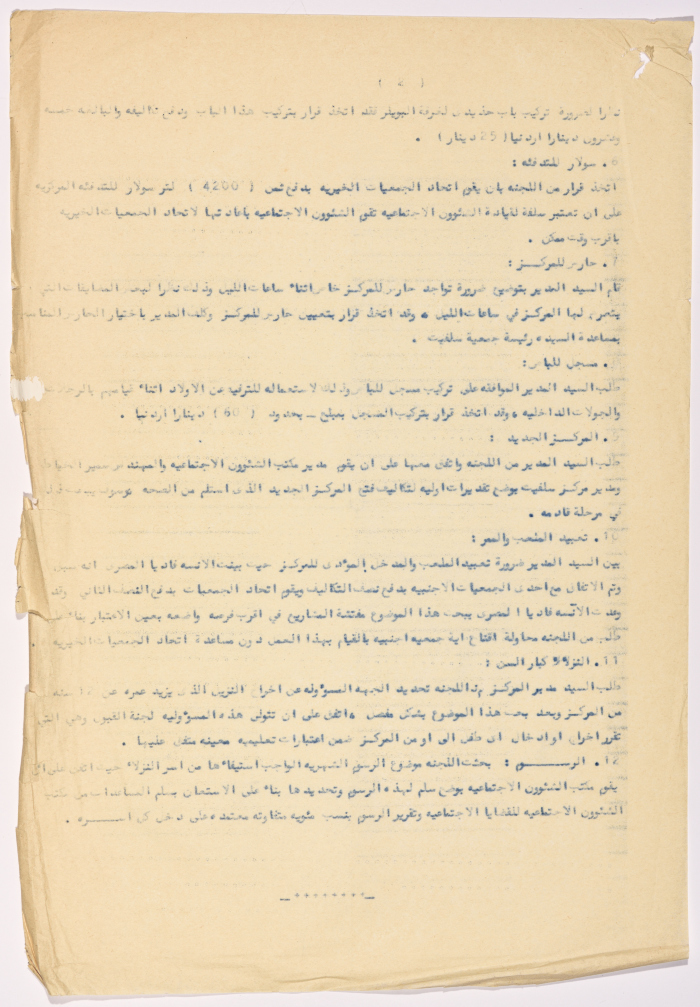 ( 2 )
نظرا لضرورة تركيب باب حديدي لغرفة البويلر فقد اتخذ قرار بتركيب هذا الباب ودفع تكاليفه والبالغه خمسه
وعشرون دينارا اردنيا ( 25 دينار ) .
6. سولار للتدفئه :
اتخذ قرار من اللجنه بان يقوم اتحاد الجمعيات الخيريه بدفع ثمن ( 4200 ) لتر سولار للتدفئه المركزيه
على ان تعتبر سلفة لقيادة الشئوون الاجتماعيه تقوم الشئوون الاجتماعيه باعادتها لاتحاد الجمعيات الخيريه
باقرب وقت ممكن .
7. حارس للمركــز :
قام السيد المدير بتوضيح ضرورة تواجد حارس للمركز خاص اثناء ساعات الليل وذلك نظرا لبعض المضايقات التي
يتعرض لها المركز في ساعات الليل ، وقد اتخذ قرار بتعيين حارس للمركز وكلف المدير باختيار الحارس المناسب
بمساعدة السيده رئيسة جمعية سلفيت .
8. مسجل للباص:
طلب السيد المدير الموافقه على تركيب مسجل للباص وذلك لاستعماله للترفيه عن الاولاد اثناء قيامهم بالرحلات
والجولات الداخليه ، وقد اتخذ قرار بتركيب المسجل بمبلغ بحدود ( 60 ) دينارا اردنيا .
9. المركــز الجديد :
طلب السيد المدير من اللجنه واتفق معها على ان يقوم مدير مكتب الشئوون الاجتماعيه والمهندس سمير
ومدير مركز سلفيت بوضع تقديرات اوليه لتكاليف فتح المركز الجديد الذى استلم من الصحه وسوف
في مرحلة قادمه .
10. تعبيد الملعب والممر :
بين السيد المدير ضرورة تعبيد الملعب والمدخل المؤدى للمركز حيث بينت الانسه ناديا المصرى انه سبق
وتم الاتفاق مع احدى الجمعيات الاجنبيه بدفع نصف التكاليف ويقوم اتحاد الجمعيات بدفع النصف الثاني وقد
وعدت الآنسه ناديا المصرى ببحث هذا الموضوع مفتشة المشاريع في اقرب فرصه واضعه بعين الاعتبار بناء على
طلب من اللجنه محاولة اقناع اية جمعيه اجنبيه بالقيام بهذا العمل دون مساعدة اتحاد الجمعيات الخيريه .
11. النزلاء كبار السن :
طلب السيد مدير المركز من اللجنه تحديد الجهه المسؤوله عن اخراج النزيل الذى يزيد عمره عن سنه
من المركز وبعد بحث هذا الموضوع بشكل مفصل ، اتفق على ان تتولى هذه المسؤوليه لجنة القبول وهي التي
تقرر اخراج او ادخال اى طفل الى او من المركز ضمن اعتبارات تعليميه معينه متفق عليها .
12. الرســـــوم : بحثت اللجنه موضوع الرسوم الشهريه الواجب استيفاءها من اسر النزلاء حيث اتفق على ان
يقوم مكتب الشئوون الاجتماعيه بوضع سلم لهذه الرسوم وتحديدها بناء على الاستعانه بسلم المساعدات من مكتب
الشئوون الاجتماعيه للقضايا الاجتماعيه وتقرير الرسوم بنسب مئويه متفاوته معتمده على دخل كل اســـره .
_ ++++++++ _